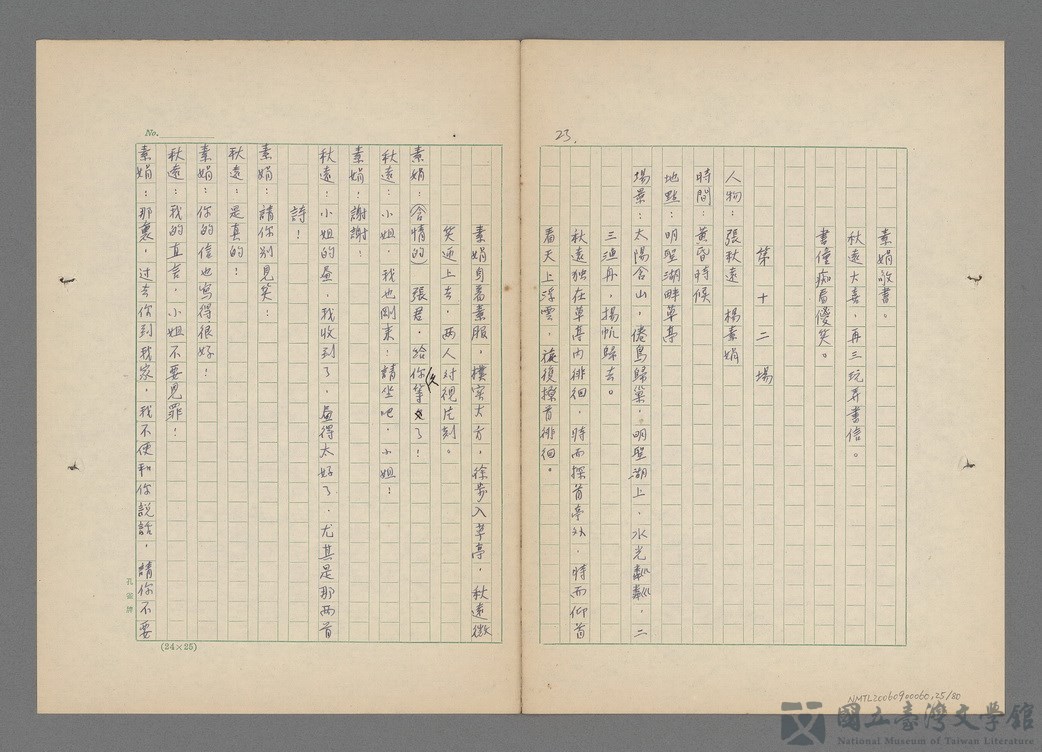 23.
素娟敬書。
秋遠大喜，再三玩弄書信。
書僮痴看傻笑。
第十二場
人物：張秋遠　楊素娟
時間：黃昏時候
地點：明聖湖畔草亭
場景：太陽含山，倦鳥歸巢，明聖湖上，水光粼粼，二
三漁舟，揚帆歸去。
秋遠獨在草亭內徘徊，時而探首亭外，時而仰首
看天上浮雲，復搔首徘徊。
No.
素娟身著素服，樸實大方，徐步入草亭，秋遠微
笑迎上去，兩人對視片刻。
素娟：（含情的）張君，給你等久了！
秋遠：小姐，我也剛來！請坐吧，小姐！
素娟：謝謝！
秋遠：小姐的畫，我收到了，畫得太好了，尤其是那兩首
詩！
素娟：請你別見笑！
秋遠：是真的！
素娟：你的信也寫得很好！
秋遠：我的直言，小姐不要見罪！
素娟：那裏，过去你到我家，我不便和你說話，請你不要
(24×25)
NMTL20060900060,25/80
國立臺灣文學館
National Museum of Taiwan Literature